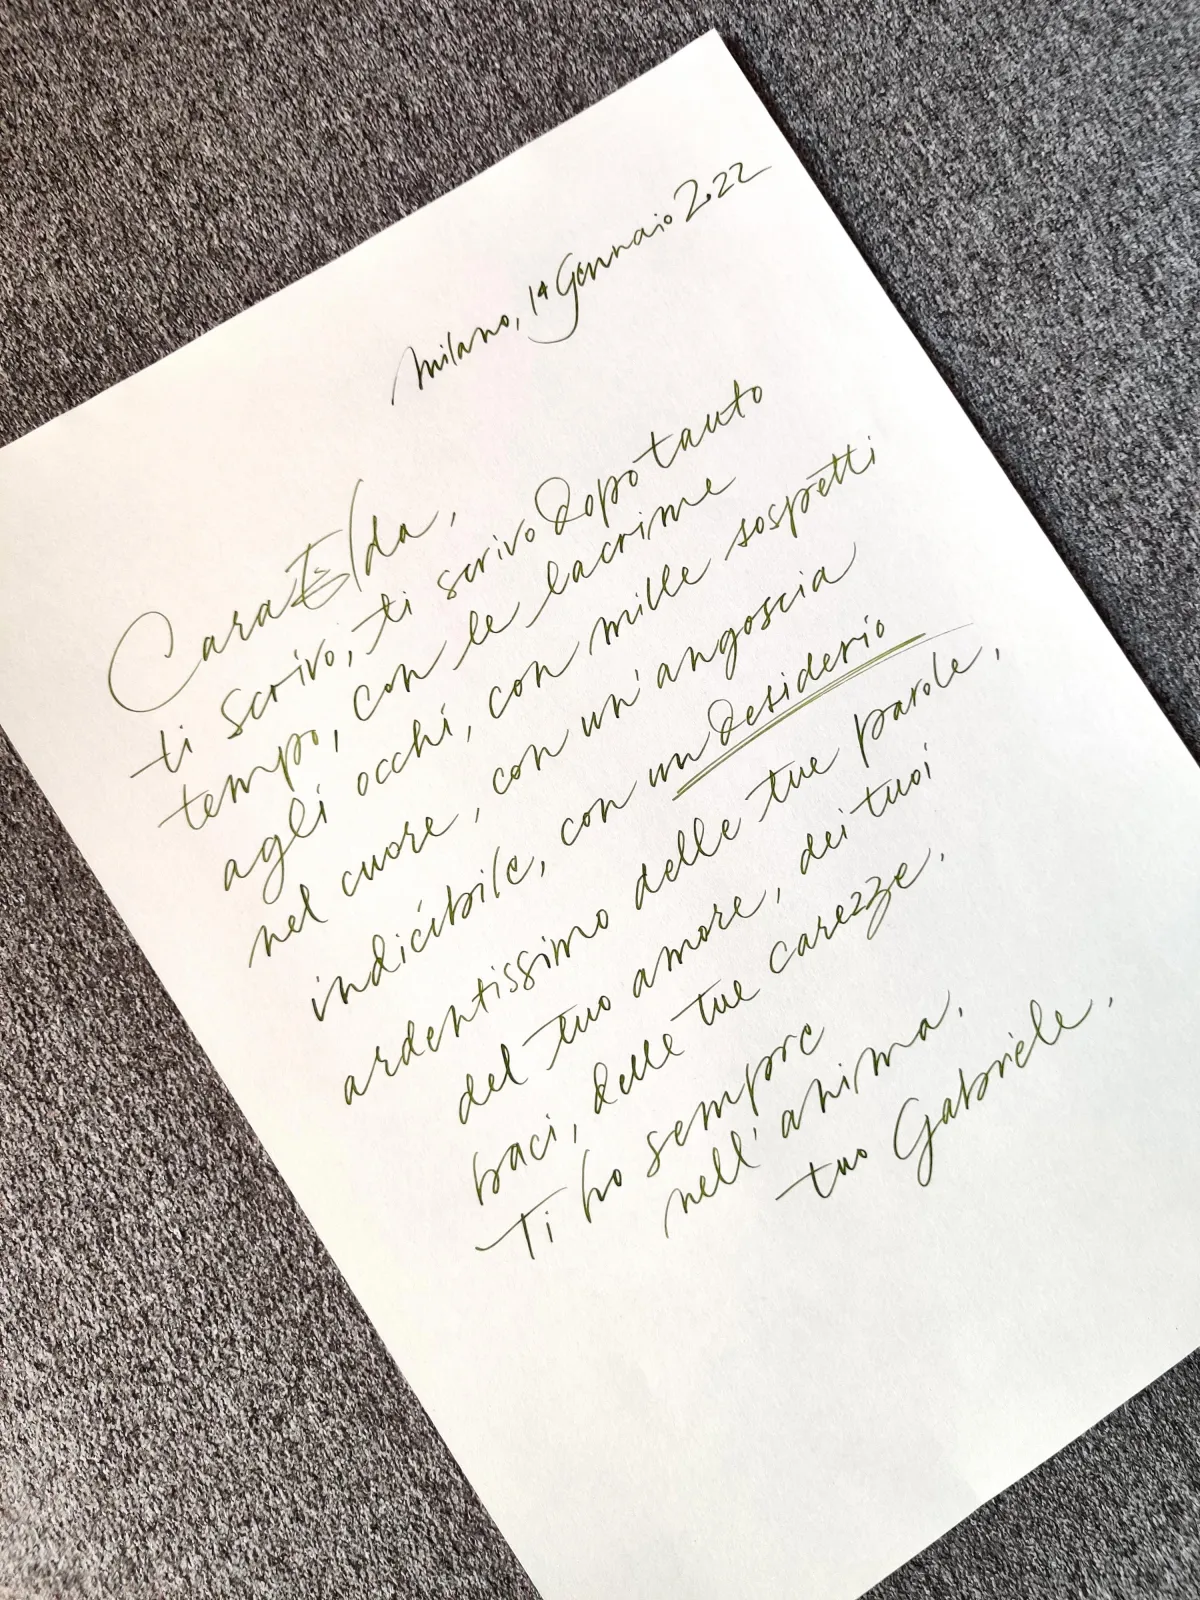 Milano, 14 Gennaio 2022
Cara Elda,
ti scrivo, ti scrivo dopo tanto
tempo, con le lacrime
agli occhi, con mille sospetti
nel cuore, con un'angoscia
indicibile, con un desiderio
ardentissimo delle tue parole,
del tuo amore, dei tuoi
baci, delle tue carezze.
Ti ho sempre
nell'anima.
tuo Gabriele.